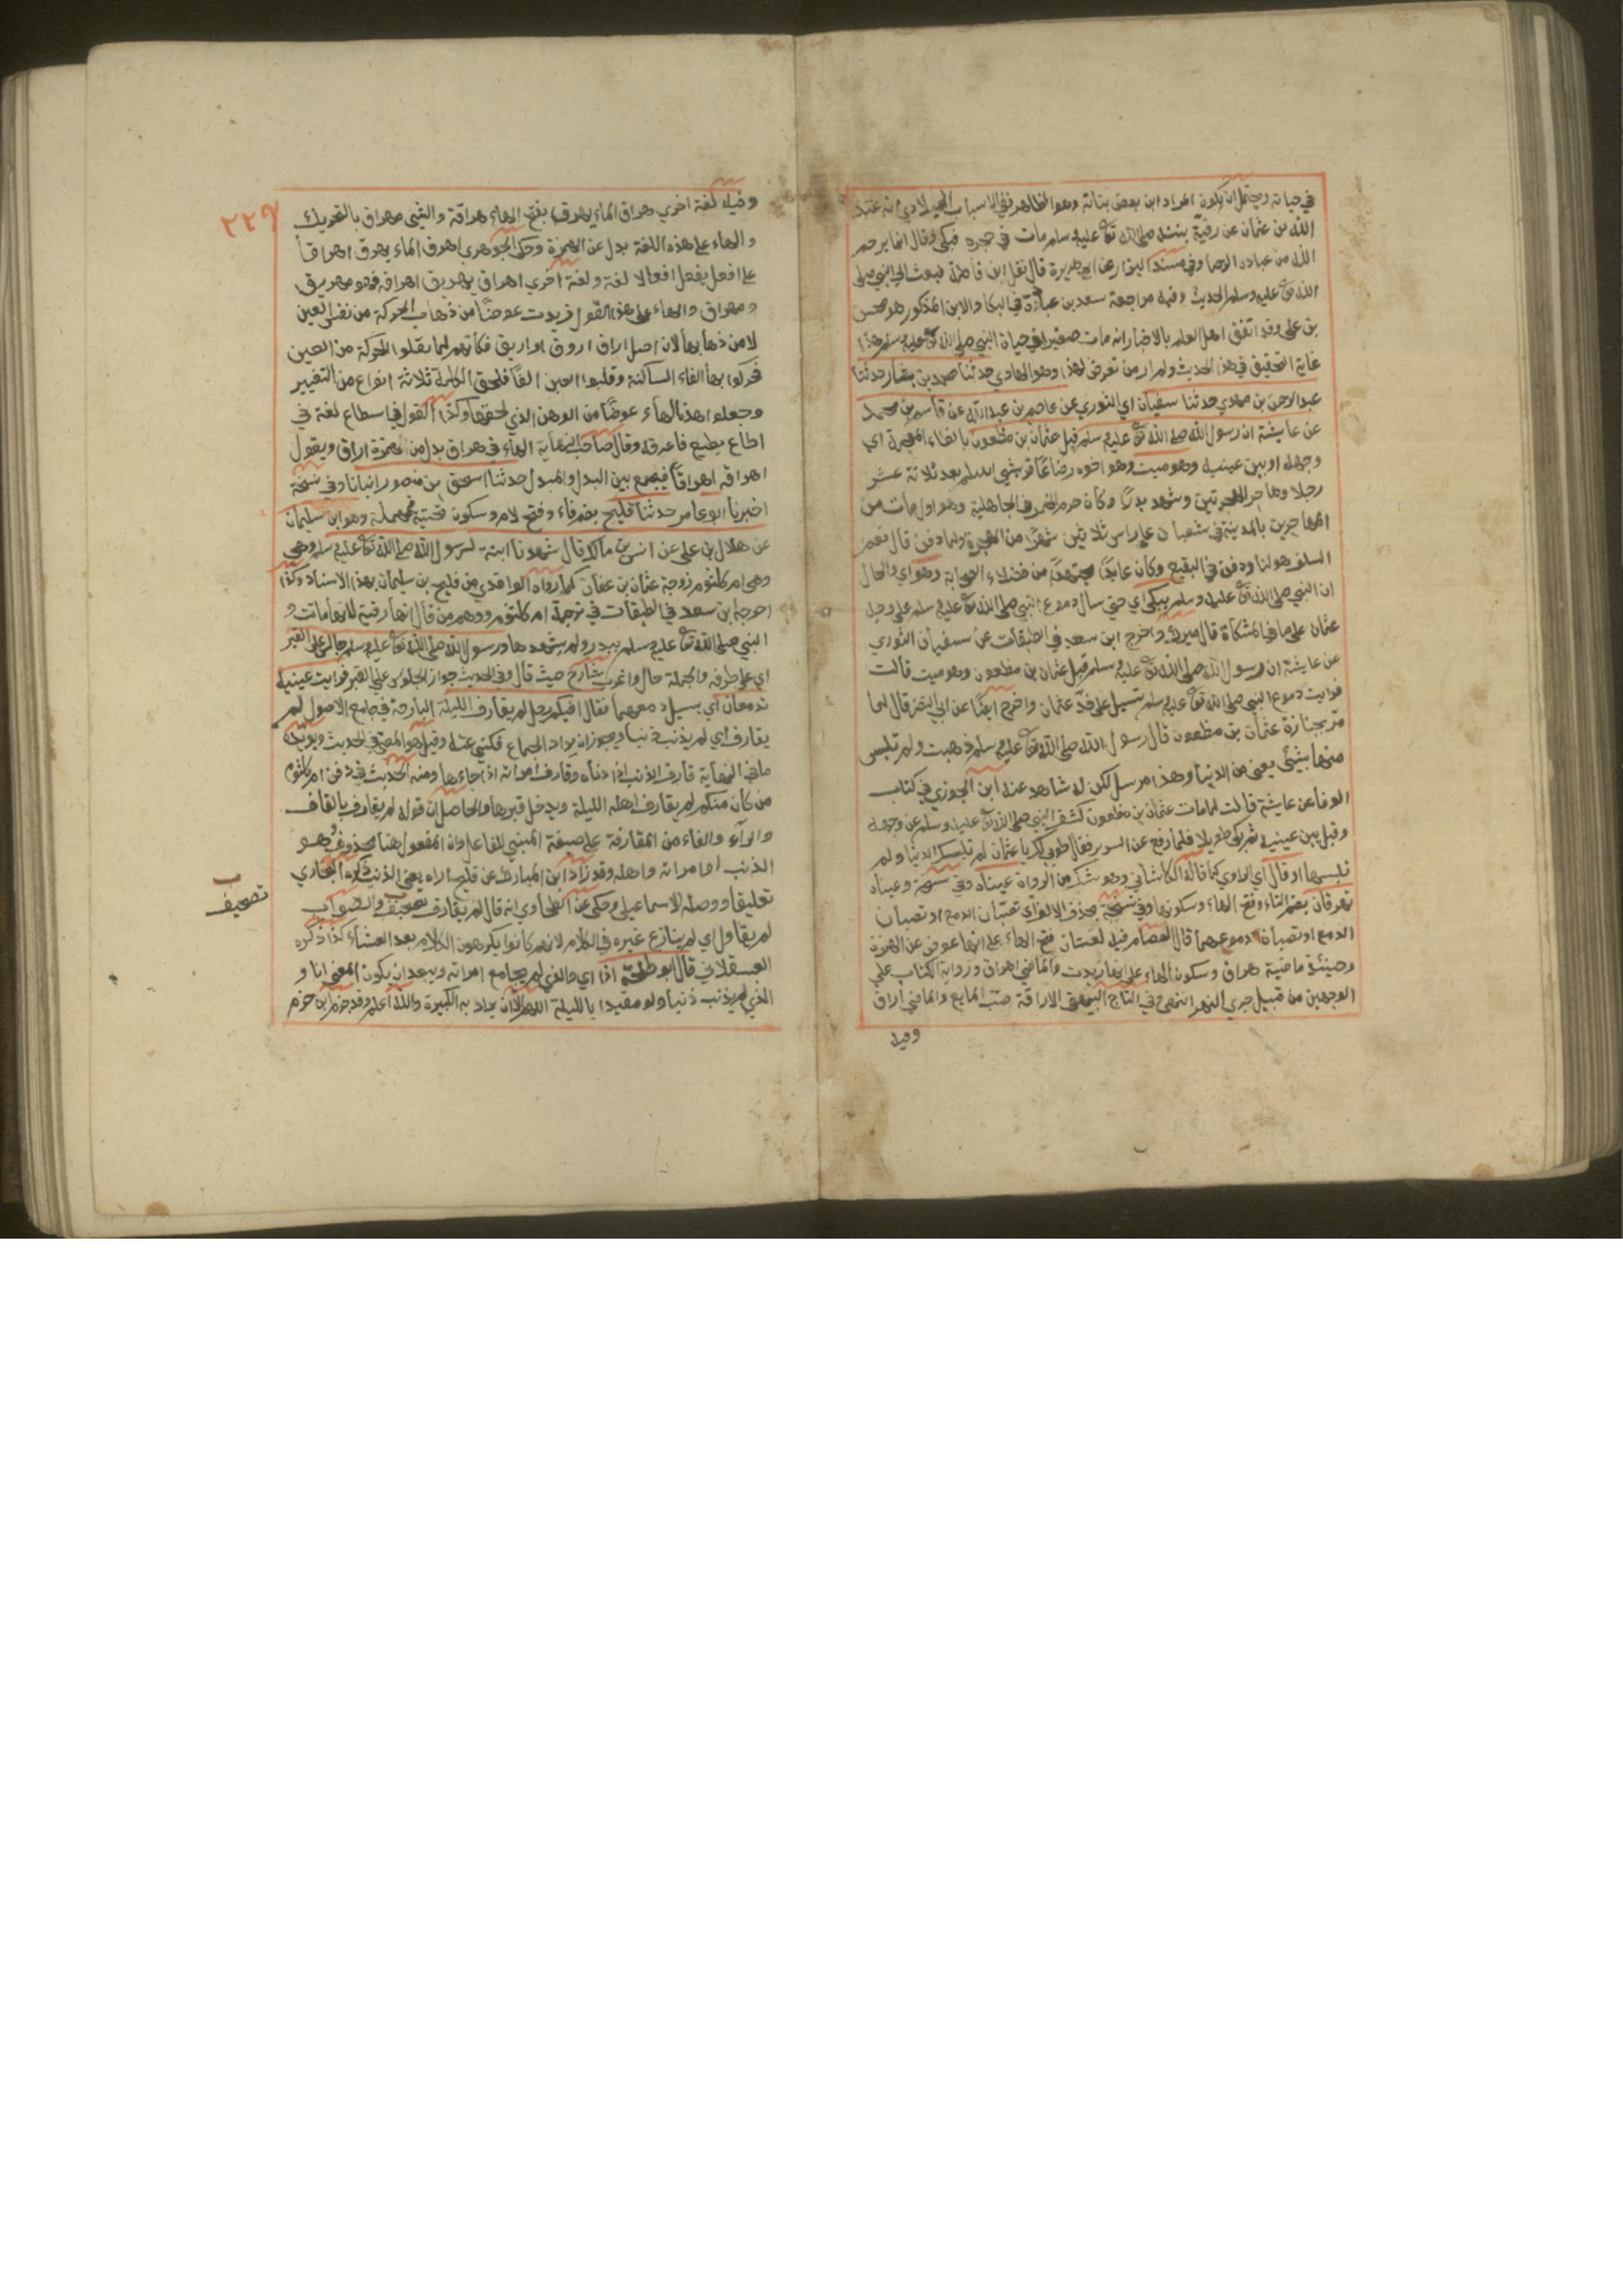 في حياته ويحتمل ان يكون المراد ابن بعض بناته وهو الظاهر ففي الانساب للبلاذري انه عبد
الله بن عثمان عن رقية بنته صلى الله تع عليه وسلم مات في حجره فبكى وقال انما يرحم
الله من عباده الرحماء وفي مسند البزار عن ابي هريرة قال ثقل ابن فاطمة فبعث الى النبي صلى
الله تع عليه وسلم الحديث وفيه مراجعة سعد بن عبادة في البكا والابن المذكور هو محسن
بن علي وقد اتفق اهل العلم بالاخبار انه مات صغيرا في حياة النبي صلى الله تع عليه وسلم هذا
غاية التحقيق في هذا الحديث ولم ار من تعرض لهذا وهو الهادي حدثنا محمد بن بشار حدثنا
عبد الرحمن بن مهدي حدثنا سفيان اي الثوري عن عاصم بن عبد الله عن قاسم بن محمد
عن عايشة ان رسول الله صلى الله تع عليه وسلم قبل عثمان بن مظعون بالظاء المعجمة اي
وجهه او بين عينيه وهو ميت وهو اخوه رضاعا قرشي اسلم بعد ثلاثة عشر
رجلا وهاجر الهجرتين وشهد بدرا وكان حرم الخمر في الجاهلية وهو اول من مات من
المهاجرين بالمدينة في شعبان على راس ثلاثين شهرا من الهجرة ولما دفن قال نعم
السلف هو لنا ودفن في البقيع وكان عابدا مجتهدا من فضلاء الصحابة وهو اي والحال
ان النبي صلى الله تع عليه وسلم يبكي اي حتى سال دموع النبي صلى الله تع عليه وسلم على وجه
عثمان على ما في المشكاة قال ميرك واخرج ابن سعد في الطبقات عن سفيان الثوري
عن عايشة ان رسول الله صلى الله تع عليه وسلم قبل عثمان بن مظعون وهو ميت قالت
فرايت دموع النبي صلى الله تع عليه وسلم تسيل على خد عثمان واخرج ايضا عن ابي النضر قال لما
مر بجنازة عثمان بن مظعون قال رسول الله صلى الله تع عليه وسلم ذهبت ولم تلبس
منها بشيئ يعني من الدنيا وهذا مرسل لكن له شاهد عند ابن الجوزي في كتاب
الوفا عن عايشة قالت لما مات عثمان بن مظعون كشف النبي صلى الله تع عليه وسلم عن وجهه
وقبل بين عينيه ثم بكى طويلا فلما رفع عن السرير فقال طوبى لك يا عثمان لم تلبسك الدنيا ولم
تلبسها او قال اي الراوي كما قاله الكاشاني وهو شك من الرواة عيناه وفي نسخة وعيناه
تهرقان بضم التاء وفتح الهاء وسكونها وفي نسخة بحذف الالف اي تصبان الدمع او تصبان
الدمع او تصبان دموعهما قال العصام فيه لغتان فتح الهاء على انها عوض عن الهمزة
وحينئذ ماضيه هراق وسكون الهاء على انها زيدت والماضي اهراق ورواية الكتاب على
الوجهين من قبيل جرى النهر انتهى وفي التاج البيهقي الاراقة صب المايع والماضي اراق
وفيه
٢٢٩
وفيه لغة اخرى هراق الماء يهرقه بفتح الهاء هراقة والشي مهراق بالتحريك
والهاء على هذه اللغة بدل عن الهمزة وحكى الجوهري اهرق الماء يهرق اهراقا
على افعل يفعل افعالا لغة ولغة اخرى اهراق يهريق اهراقة فهو مهريق
ومهراق والهاء على هذا القول زيدت عوضا من ذهاب الحركة من نفس العين
لا من ذهابها لان اصل اراق اروق او اريق فكانهم لما نقلوا الحركة من العين
فحركوا بها الفاء الساكنة وقلبوا العين الفا فلحق الكلمة ثلاثة انواع من التغيير
وجعلوا هذه الهاء عوضا من الوهن الذي لحقها وكذا القول في اسطاع لغة في
اطاع يطيع فاعرفه وقال صاحب النهاية الهاء في هراق بدل من همزة اراق ويقول
اهراقه اهراقا فيجمع بين البدل والمبدل حدثنا اسحق بن منصور انبانا وفي نسخة
اخبرنا ابو عامر حدثنا فليح بضم فاء وفتح لام وسكون تحتية فمهملة وهو ابن سليمان
عن هلال بن علي عن انس بن مالك قال شهدنا ابنة لرسول الله صلى الله تع عليه وسلم وهي
وهي ام كلثوم زوجة عثمان بن عفان كما رواه الواقدي من فليح بن سليمان بهذا الاسناد وكذا
اخرجه ابن سعد في الطبقات في ترجمة ام كلثوم ووهم من قال انها رقية لانها ماتت و
النبي صلى الله تع عليه وسلم ببدر ولم يشهدها ورسول الله صلى الله تع عليه وسلم جالس على القبر
اي على طرفه والجملة حال واغرب شارح حيث قال وفي الحديث جواز الجلوس على القبر فرايت عينيه
تدمعان اي يسيل دمعهما فقال افيكم رجل لم يقارف الليلة البارحة في جامع الاصول لم
يقارف اي لم يذنب ذنبا ويجوز ان يراد الجماع فكنى عنه وقيل هو المعنى في الحديث ويؤيده
ما في النهاية قارف الذنب اذا دناه وقارف امراته اذا جاءها ومنه الحديث في دفن ام كلثوم
من كان منكم لم يقارف اهله الليلة ويدخل قبرها والحاصل ان قوله لم يقارف بالقاف
والراء والفاء من المقارفة على صيغة المبني للفاعل وان المفعول هنا محذوف وهو
الذنب او امراته واهله وقد زاد ابن المبارك عن فليح اراه يعني الذنب ذكره البخاري
تعليقا ووصله الاسماعيلي وحكى عن الطحاوي انه قال لم يقارف تصحيف والصواب
تصحيف
لم يقاول اي لم ينازع غيره في الكلام لانهم كانوا يكرهون الكلام بعد العشاء كذا ذكره
العسقلاني قال ابو طلحة انا اي والذي لم يجامع امراته ويبعد ان يكون المعنى انا و
الذي لم يذنب ذنبا ولو مقيدا بالليلة اللهم الا ان يراد به الكبيرة والله اعلم وقد جزم ابن حزم